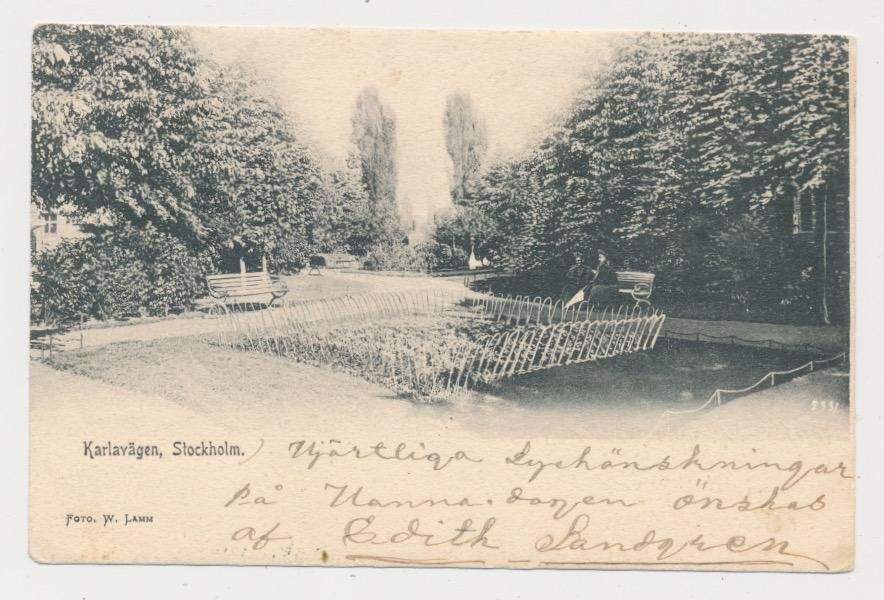 5531
Karlavägen, Stockholm.
Hjärtliga Lyckönskningar
på Hanna-dagen önskas
af Edith Sandgren
Foto. W. Lamm